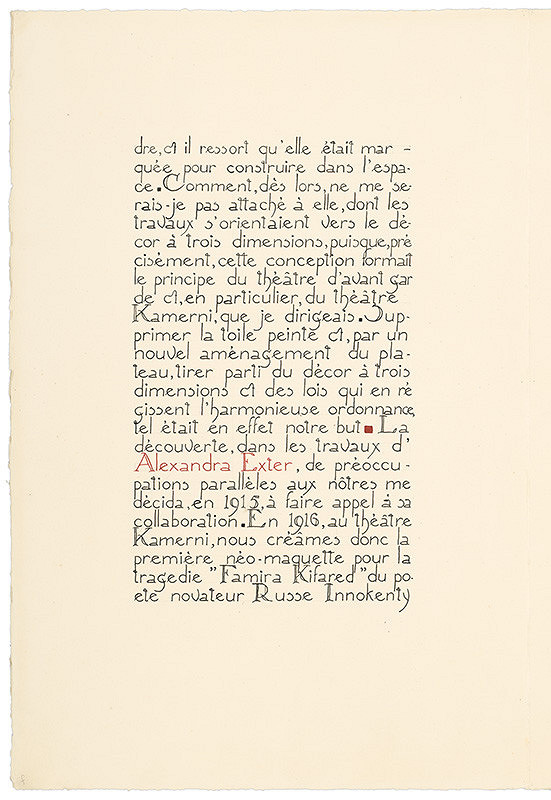 dre, et il ressort qu'elle était mar -
quée pour construire dans l'espa-
ce. Comment, dès lors, ne me se-
rais-je pas attaché à elle, dont les
travaux s'orientaient vers le dé-
cor à trois dimensions, puisque, pré
cisément, cette conception formait
le principe du théâtre d'avant gar
de et, en particulier, du théâtre
Kamerni, que je dirigeais. Sup-
primer la toile peinte et, par un
nouvel aménagement du pla-
teau, tirer parti du décor à trois
dimensions et des lois qui en ré
gissent l'harmonieuse ordonnance,
tel était en effet notre but. La
découverte, dans les travaux d'
Alexandra Exter, de préoccu -
pations parallèles aux nôtres me
décida, en 1915, à faire appel à sa
collaboration. En 1916, au théâtre
Kamerni, nous créâmes donc la
première néo-maquette pour la
tragedie "Famira Kifared" du po-
ete novateur Russe Innokenty